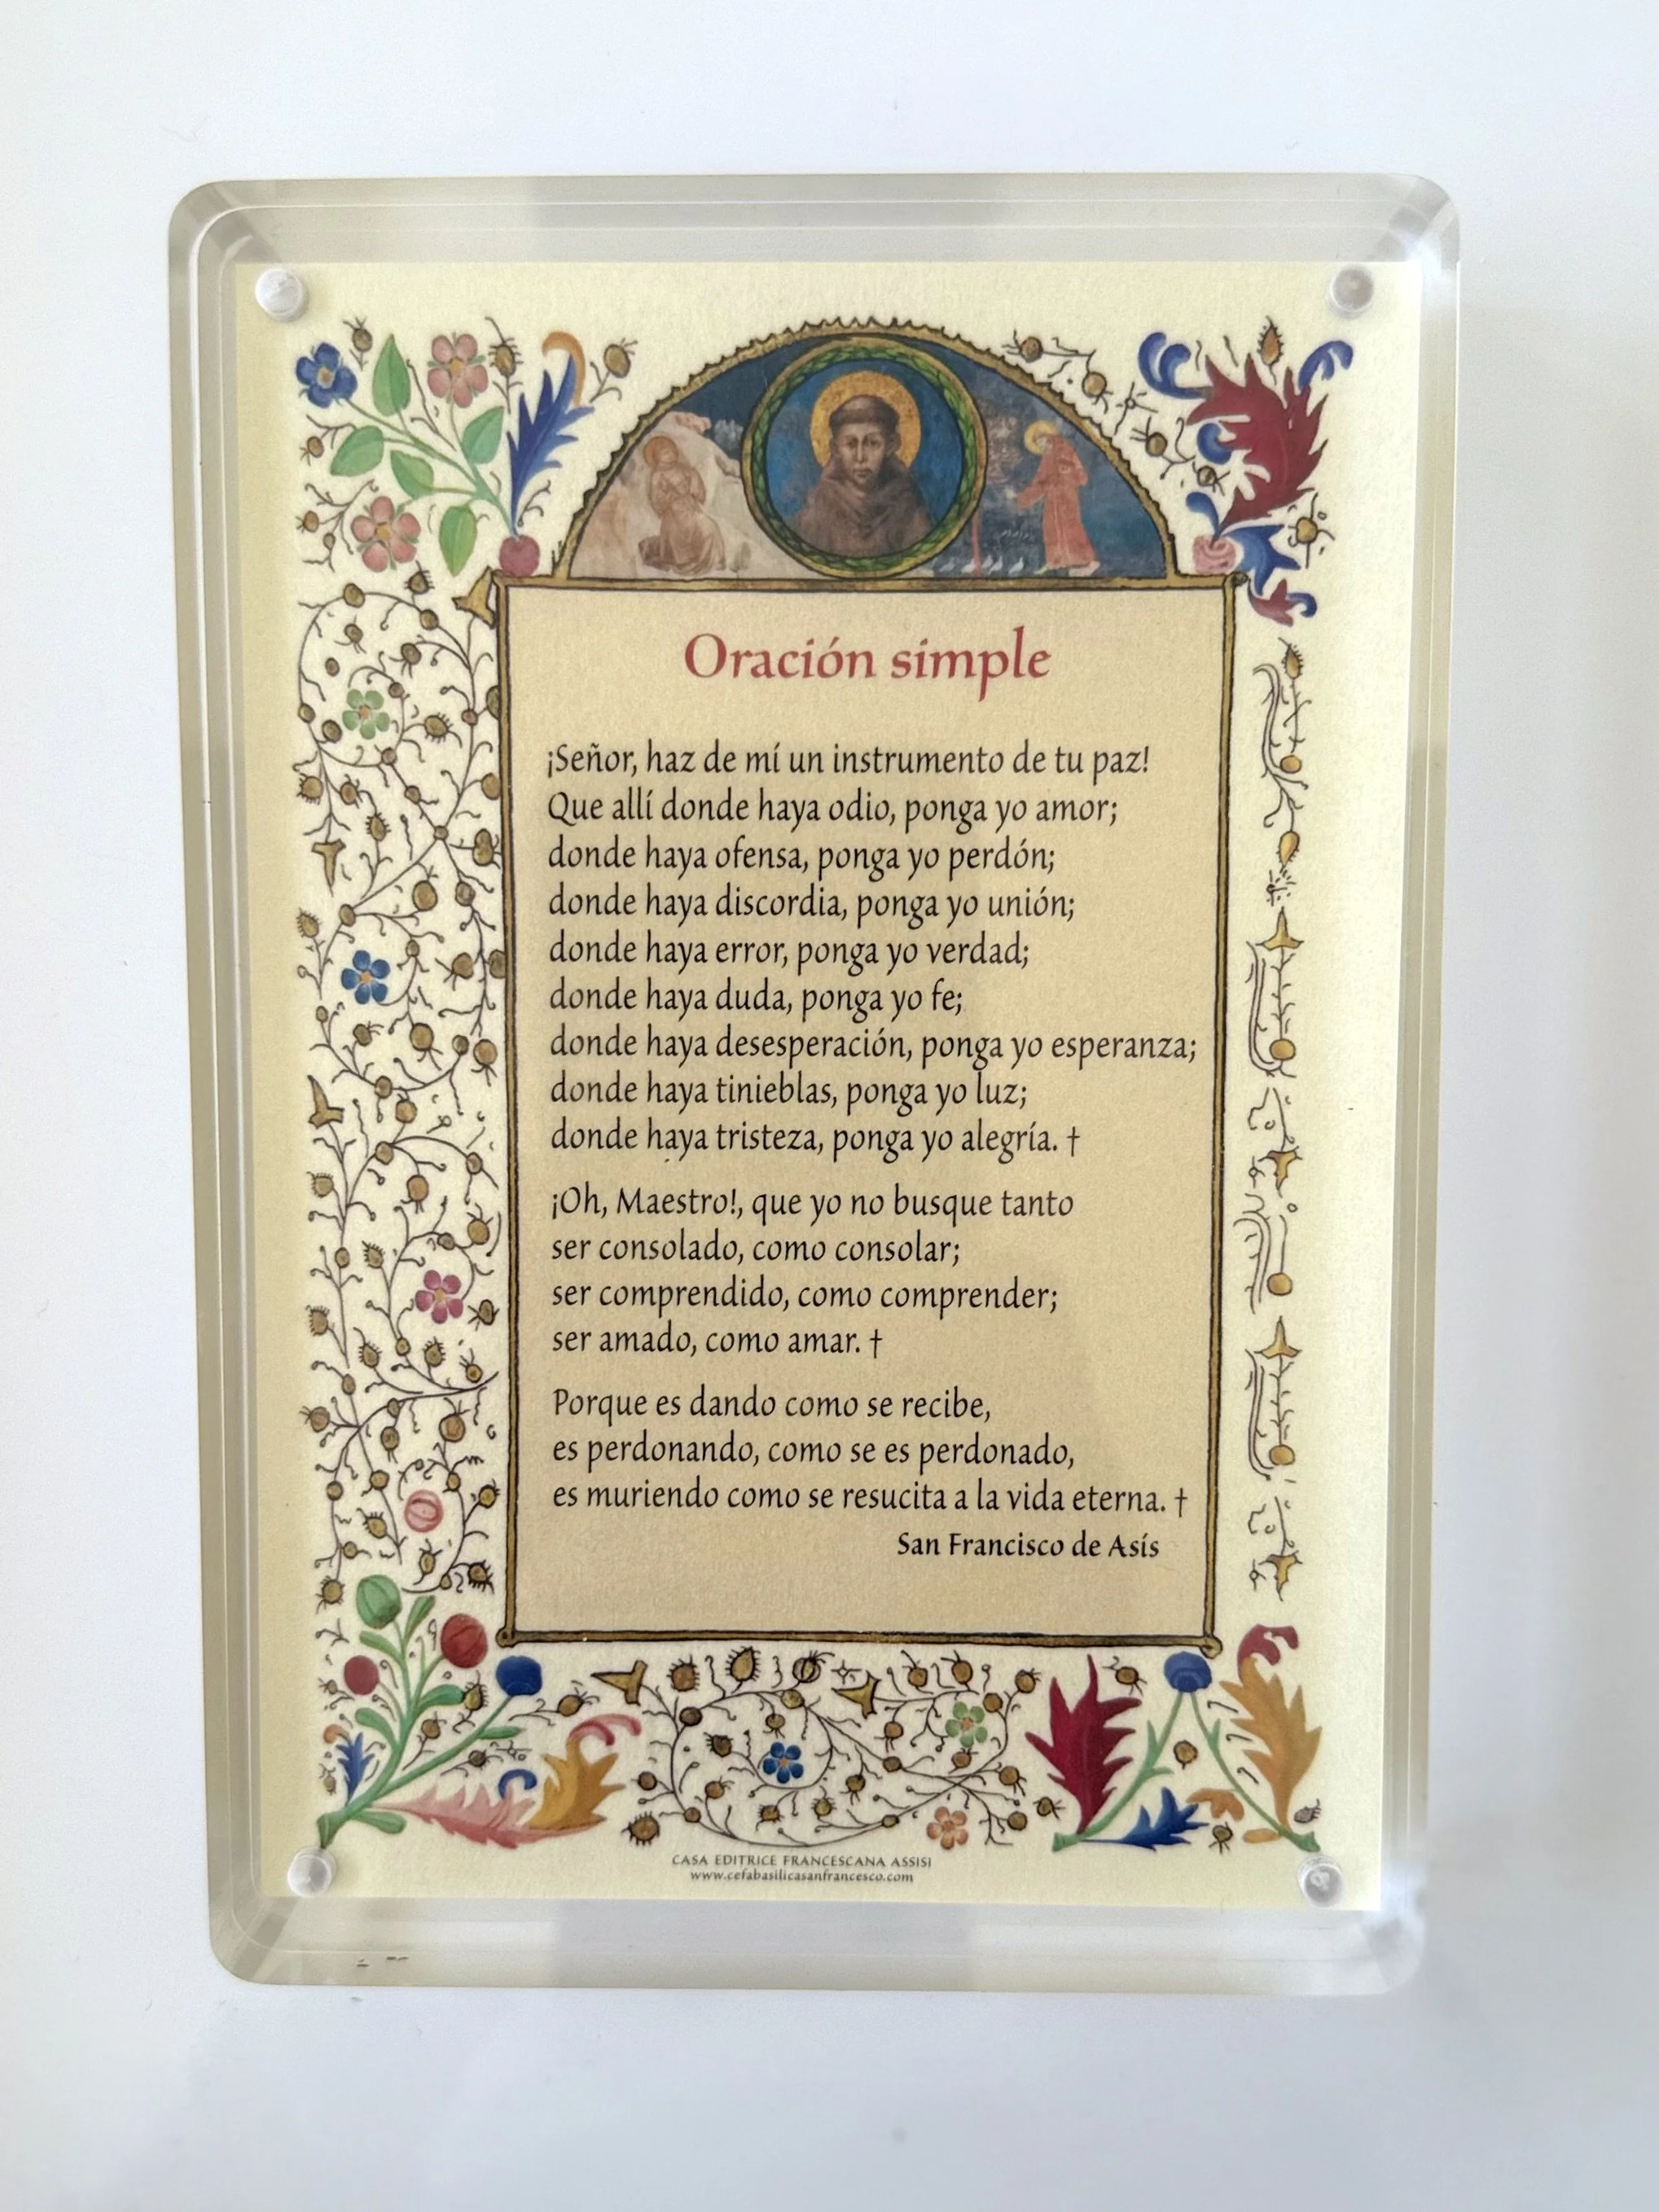 Oración simple
¡Señor, haz de mí un instrumento de tu paz!
Que allí donde haya odio, ponga yo amor;
donde haya ofensa, ponga yo perdón;
donde haya discordia, ponga yo unión;
donde haya error, ponga yo verdad;
donde haya duda, ponga yo fe;
donde haya desesperación, ponga yo esperanza;
donde haya tinieblas, ponga yo luz;
donde haya tristeza, ponga yo alegría. †
¡Oh, Maestro!, que yo no busque tanto
ser consolado, como consolar;
ser comprendido, como comprender;
ser amado, como amar. †
Porque es dando como se recibe,
es perdonando, como se es perdonado,
es muriendo como se resucita a la vida eterna. †
San Francisco de Asís
CASA EDITRICE FRANCESCANA ASSISI
www.cefabasilicasanfrancesco.com